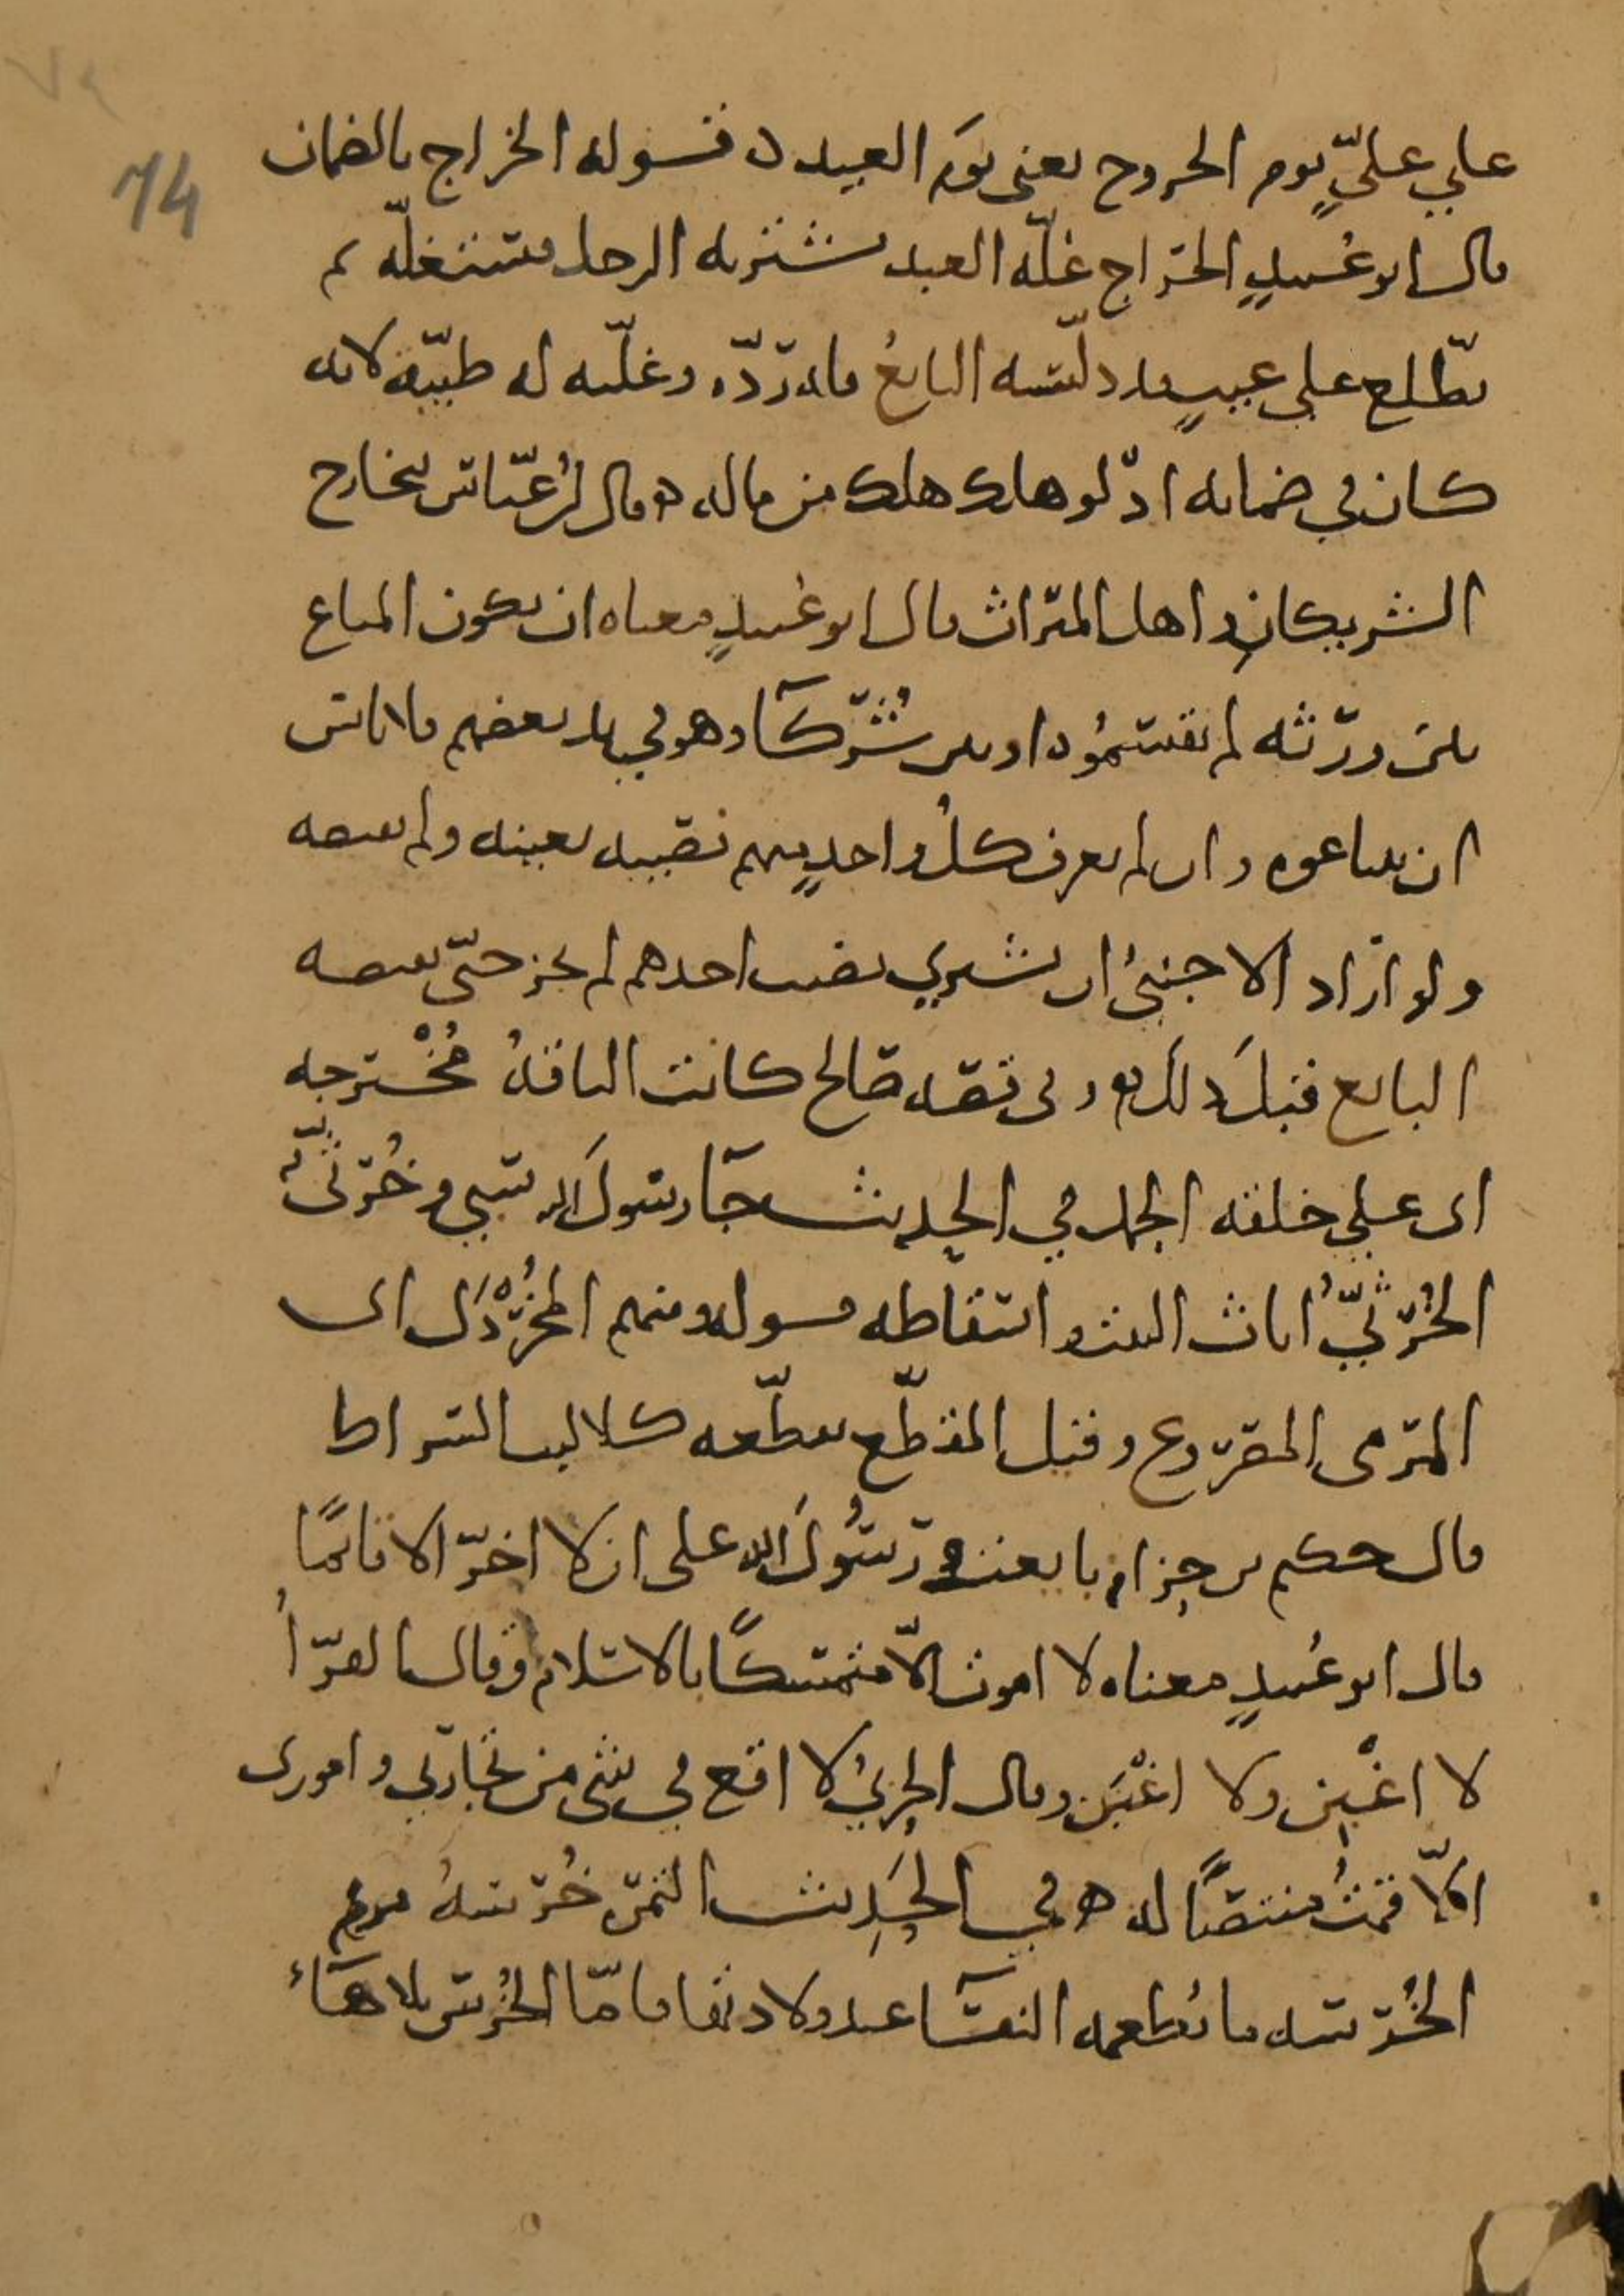 ٧٤
74
علي عليٍّ يوم الخروج يعني يوَم العيد ه قوله الخراج بالضمان
قال ابو عُبيدٍ الخراج غلّه العبد يشتريه الرجل فيستغلّه ثم
يطّلع على عيبٍ قد دلّسه البايعُ فله ردّه وغلّته له طيّبه لانه
كان في ضمانه اذ لو هلك هلك من ماله ه قال ابن عبّاس يتخارج
الشريكان واهل الميراث قال ابو عُبيدٍ معناه ان يكون المتاع
بين ورَثه لم يقتسمُوه او بين شُرَكآ وهو في يد بعضهم فلا باس
ان يتبايعوه وان لم يعرف كلُّ واحدٍ منهم نصيبه بعينه ولم يقبضه
ولو اراد الاجنبيُّ ان يشتري نصيب احدهم لم يجز حتّى يقبضه
البايع قبلَ ذلك في قصه صالح كانت الناقهُ مُخْترجه
اي على خلقه الجمل في الحديث جآ رسولَ الله سَبي وخُرثيّ
الخُرثيُّ اثاث البيت واسقاطه قوله ومنهم المُخَرْدَل اي
المرمى المصروع وقيل المقطّع تقطّعه كلاليب الصراط
قال حكيم بن حِزام بايعت رسُولَ الله على ان لا اخرّ الا قائمًا
قال ابو عُبيدٍ معناه لا اموت الّا متمسّكًا بالاسلام وقال الفرّاُ
لا اغْبِن ولا اغْبَن وقال الحربيُّ لا اقع في شي من تجارتي وامورى
الّا قمتُ منتصبًا له ه في الحَدِيث التمر خُرسهُ مريم
الخُرسه ما تُطعمه النفسآ عند ولادتها فامّا الخُرس بلا هآءٍ